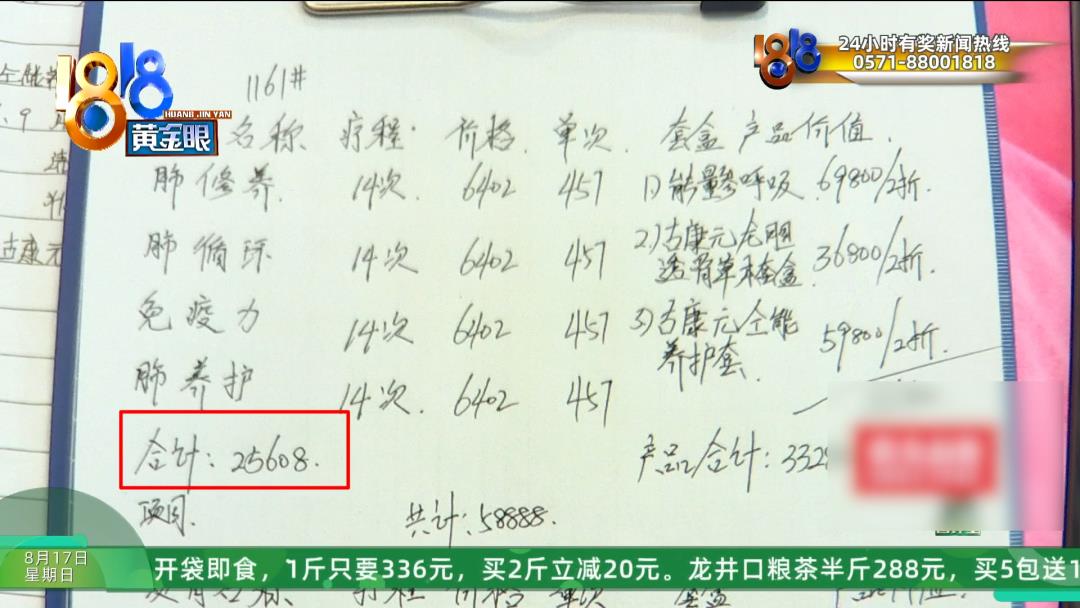 24小时有奖新闻热线
0571-88001818
1818
HUANG JIN YAN
黄金眼
1161#
名称 疗程 价格 单次 套盒产品价值
肺修养 14次 6402 457 1)能量参呼吸 69800/2折
肺循环 14次 6402 457 2)古康元龙胆透骨草末套盒 36800/2折
免疫力 14次 6402 457 3)古康元全能养护套 59800/2折
肺养护 14次 6402 457
合计:25608. 产品合计:332
项目. 共计:58888.
8月17日
星期日
开袋即食，1斤只要336元，买2斤立减20元。龙井口粮茶半斤288元，买5包送1